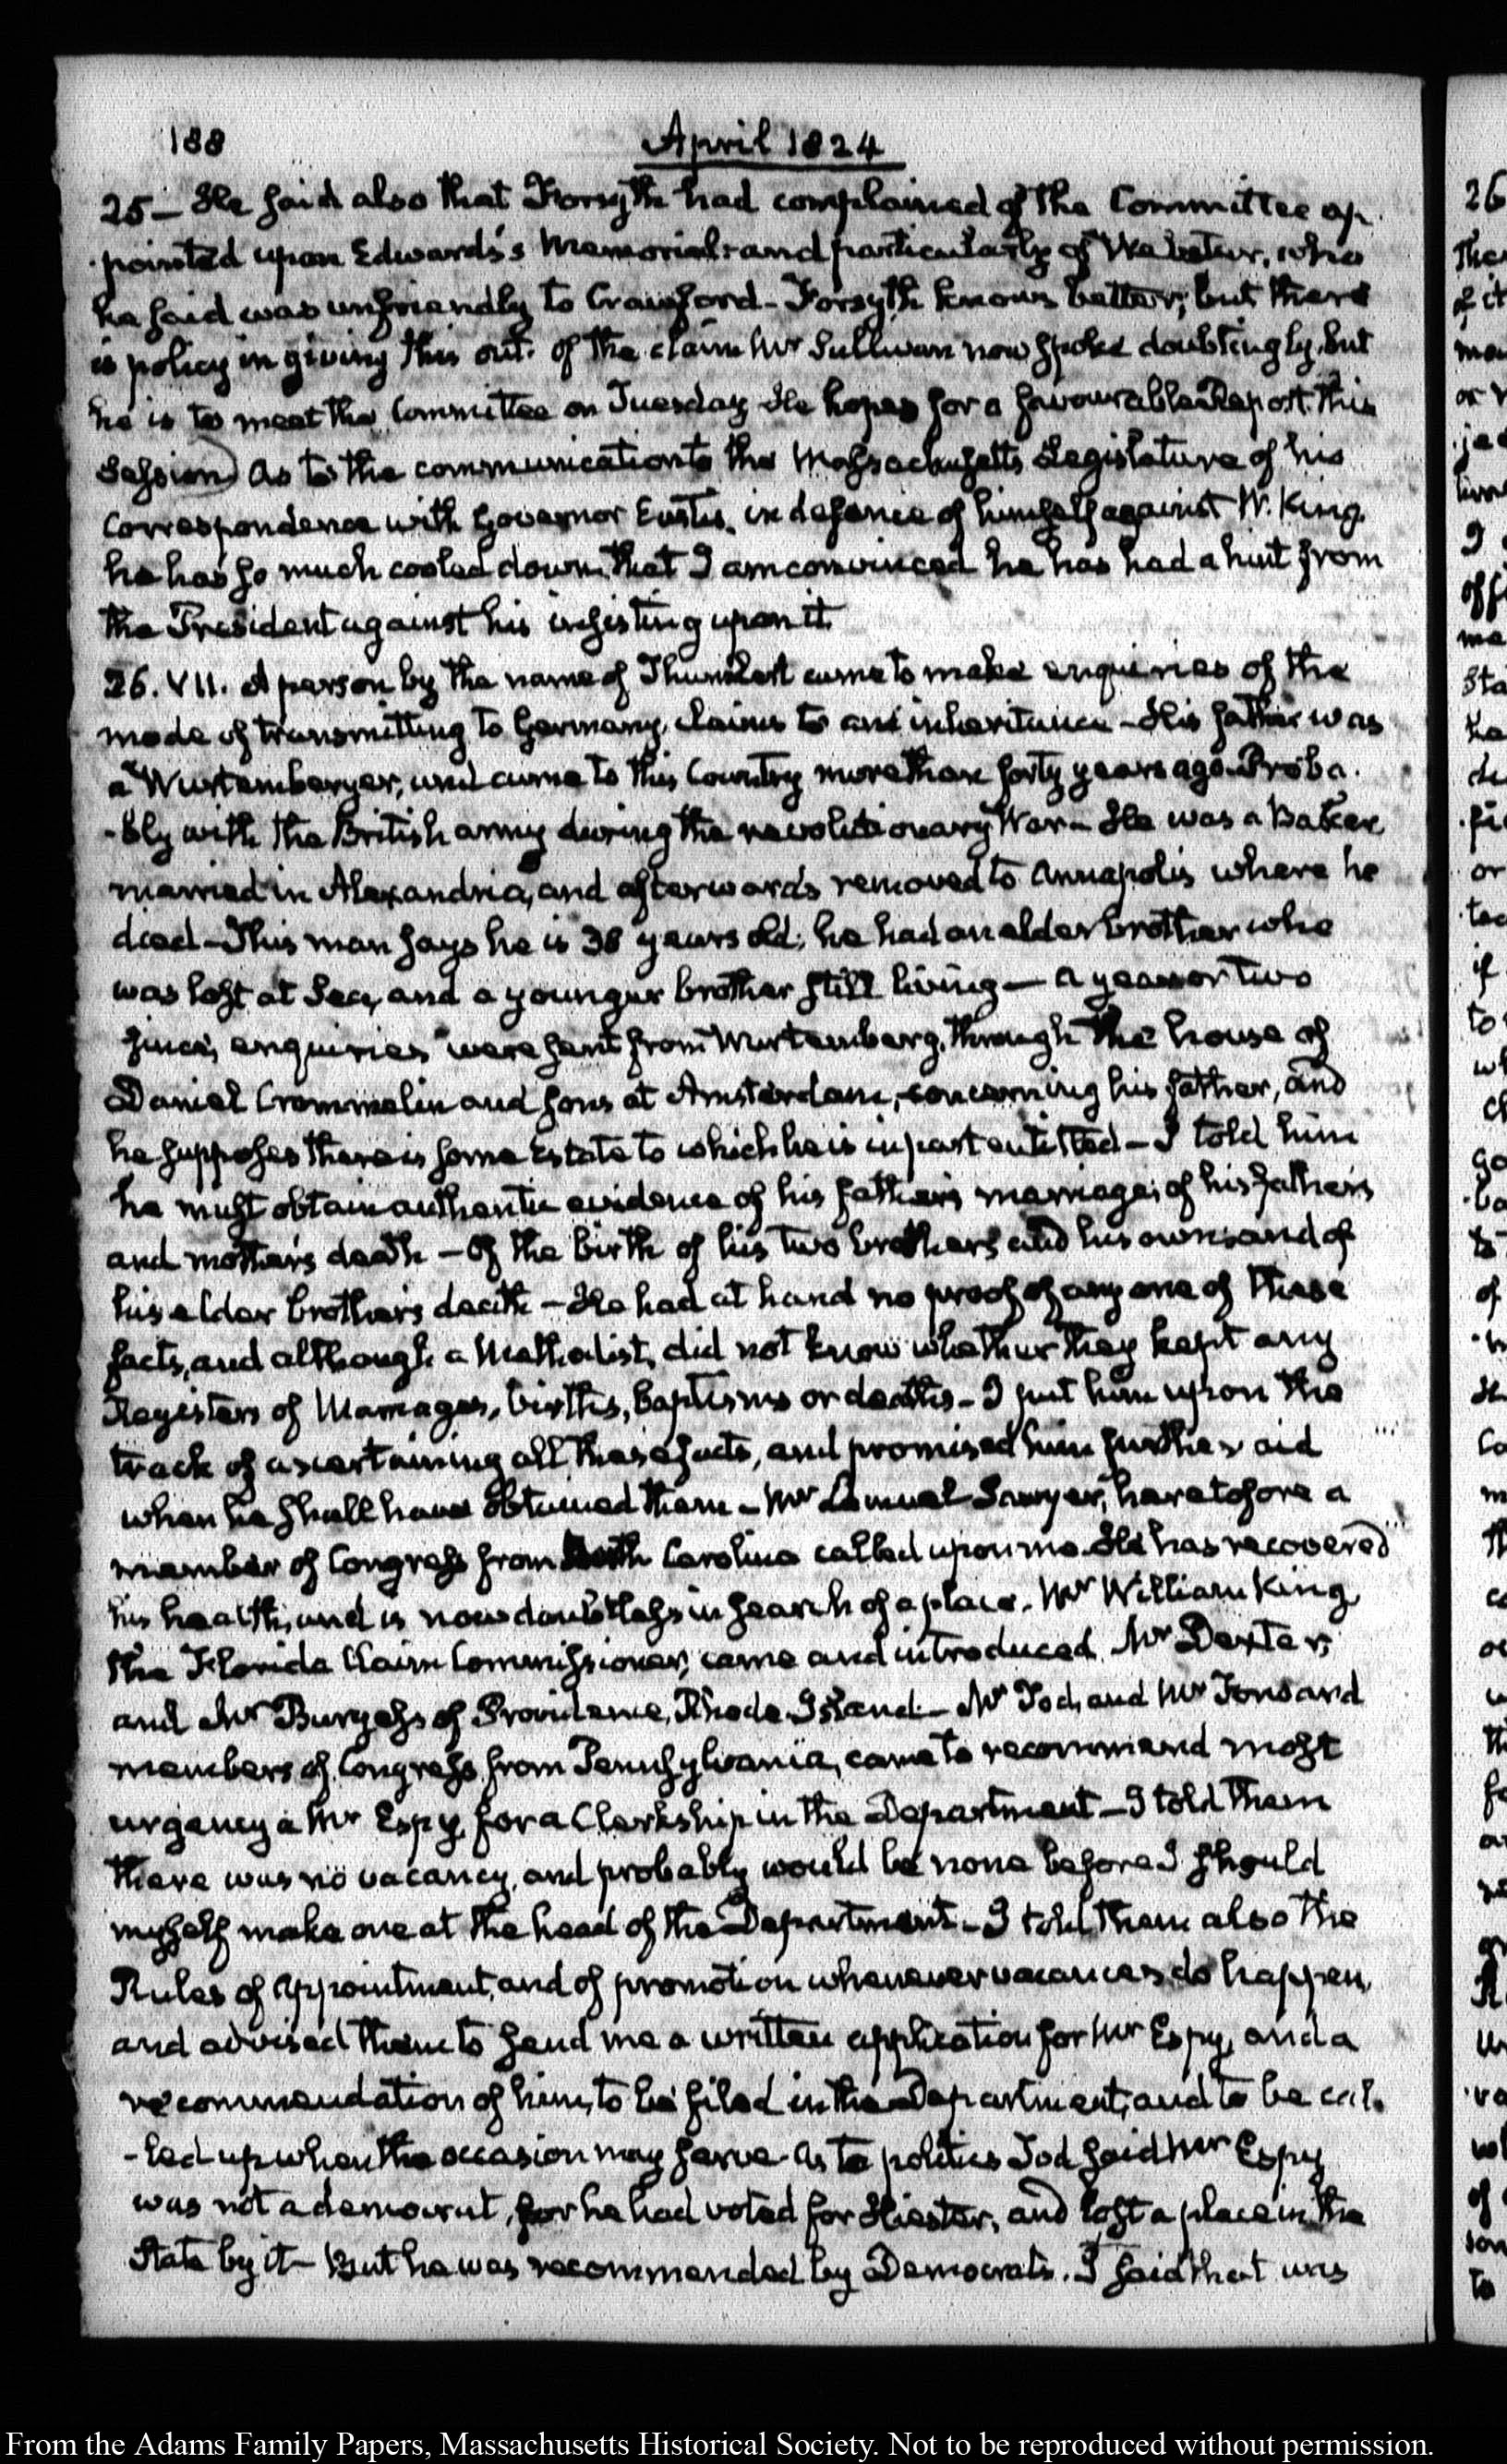 188
April 1824
25 — He said also that Forsyth had complained of the Committee ap
-pointed upon Edwards's Memorial: and particularly of Webster, who
he said was unfriendly to Crawford — Forsyth knows better; but there
is policy in giving this out. Of the claim Mr Sullivan now spoke doubtingly, but
he is to meet the Committee on Tuesday He hopes for a favourable Report this
Session) As to the communication to the Massachusetts Legislature of his
Correspondence with Governor Eustis, in defence of himself against W. King,
he has so much cooled down, that I am convinced he has had a hint from
the President against his insisting upon it.
26. VII. A person by the name of came to make enquiries of the
mode of transmitting to Germany, claims to an inheritance — His father was
a Wurtemberger, and came to this Country more than forty years ago. Proba
-bly with the British army during the revolutionary War — He was a Baker
married in Alexandria, and afterwards removed to Annapolis where he
died — This man says he is 38 years old; he had an elder brother who
was lost at Sea, and a younger brother still living — a year or two
since, enquiries were sent from Wurtemberg, through the house of
Daniel Crommelin and Sons at Amsterdam, concerning his father, and
he supposes there is some Estate to which he is in part entitled — I told him
he must obtain authentic evidence of his father's marriage; of his father's
and mother's death — of the birth of his two brothers and his own; and of
his elder brother's death — He had at hand no proof of any one of these
facts, and although a Methodist, did not know whether they kept any
Registers of Marriages, births, baptisms or deaths — I put him upon the
track of ascertaining all these facts, and promised him further aid
when he shall have obtained them — Mr Lemuel Sawyer, heretofore a
member of Congress from North Carolina called upon me. He has recovered
his health, and is now doubtless in search of a place. Mr William King,
the Florida Claim Commissioner, came and introduced Mr Dexter,
and Mr Burgess of Providence, Rhode Island — Mr Tod, and Mr
members of Congress from Pennsylvania, came to recommend most
urgency a Mr Espy, for a Clerkship in the Department — I told them
there was no vacancy, and probably would be none before I should
myself make one at the head of the Department — I told them also the
Rules of appointment, and of promotion whenever vacancies do happen,
and advised them to send me a written application for Mr Espy, and a
recommendation of him, to be filed in the Department, and to be cal
-led up when the occasion may serve. As to politics Tod said Mr Espy
was not a democrat, for he had voted for Hiester, and lost a place in the
State by it — But he was recommended by Democrats. I said that was
26
From the Adams Family Papers, Massachusetts Historical Society. Not to be reproduced without permission.